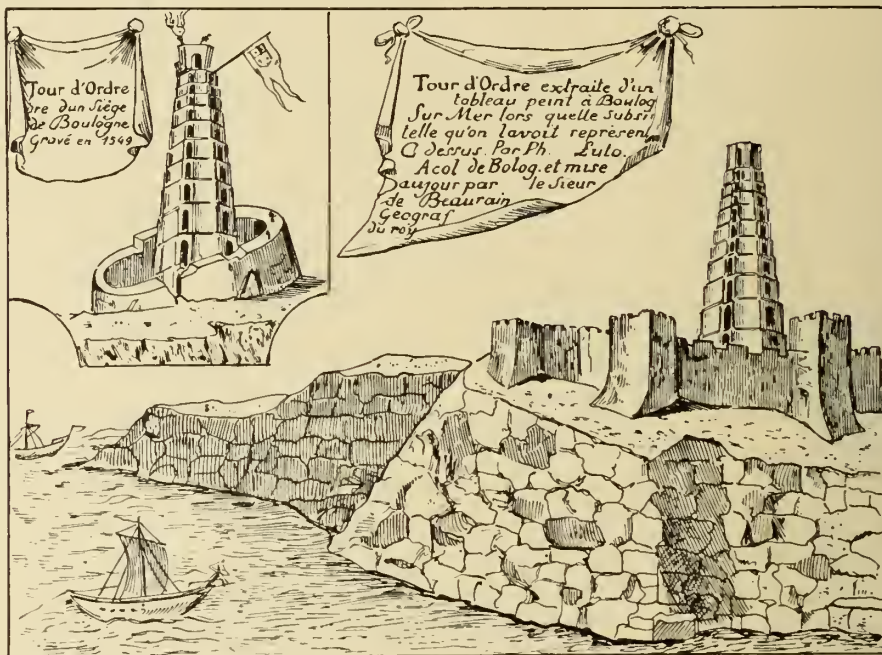 Tour d'Ordre
dre dun Siège
de Boulogne
Gravé en 1549
Tour d'Ordre extraite d'un
tableau peint à Boulog
Sur Mer lors quelle Subsi
telle qu'on lavoit represen
C dessus. Par Ph. Luto.
Acol de Bolog. et mise
aujour par le Sieur
de Beaurain
Geograf
du roy